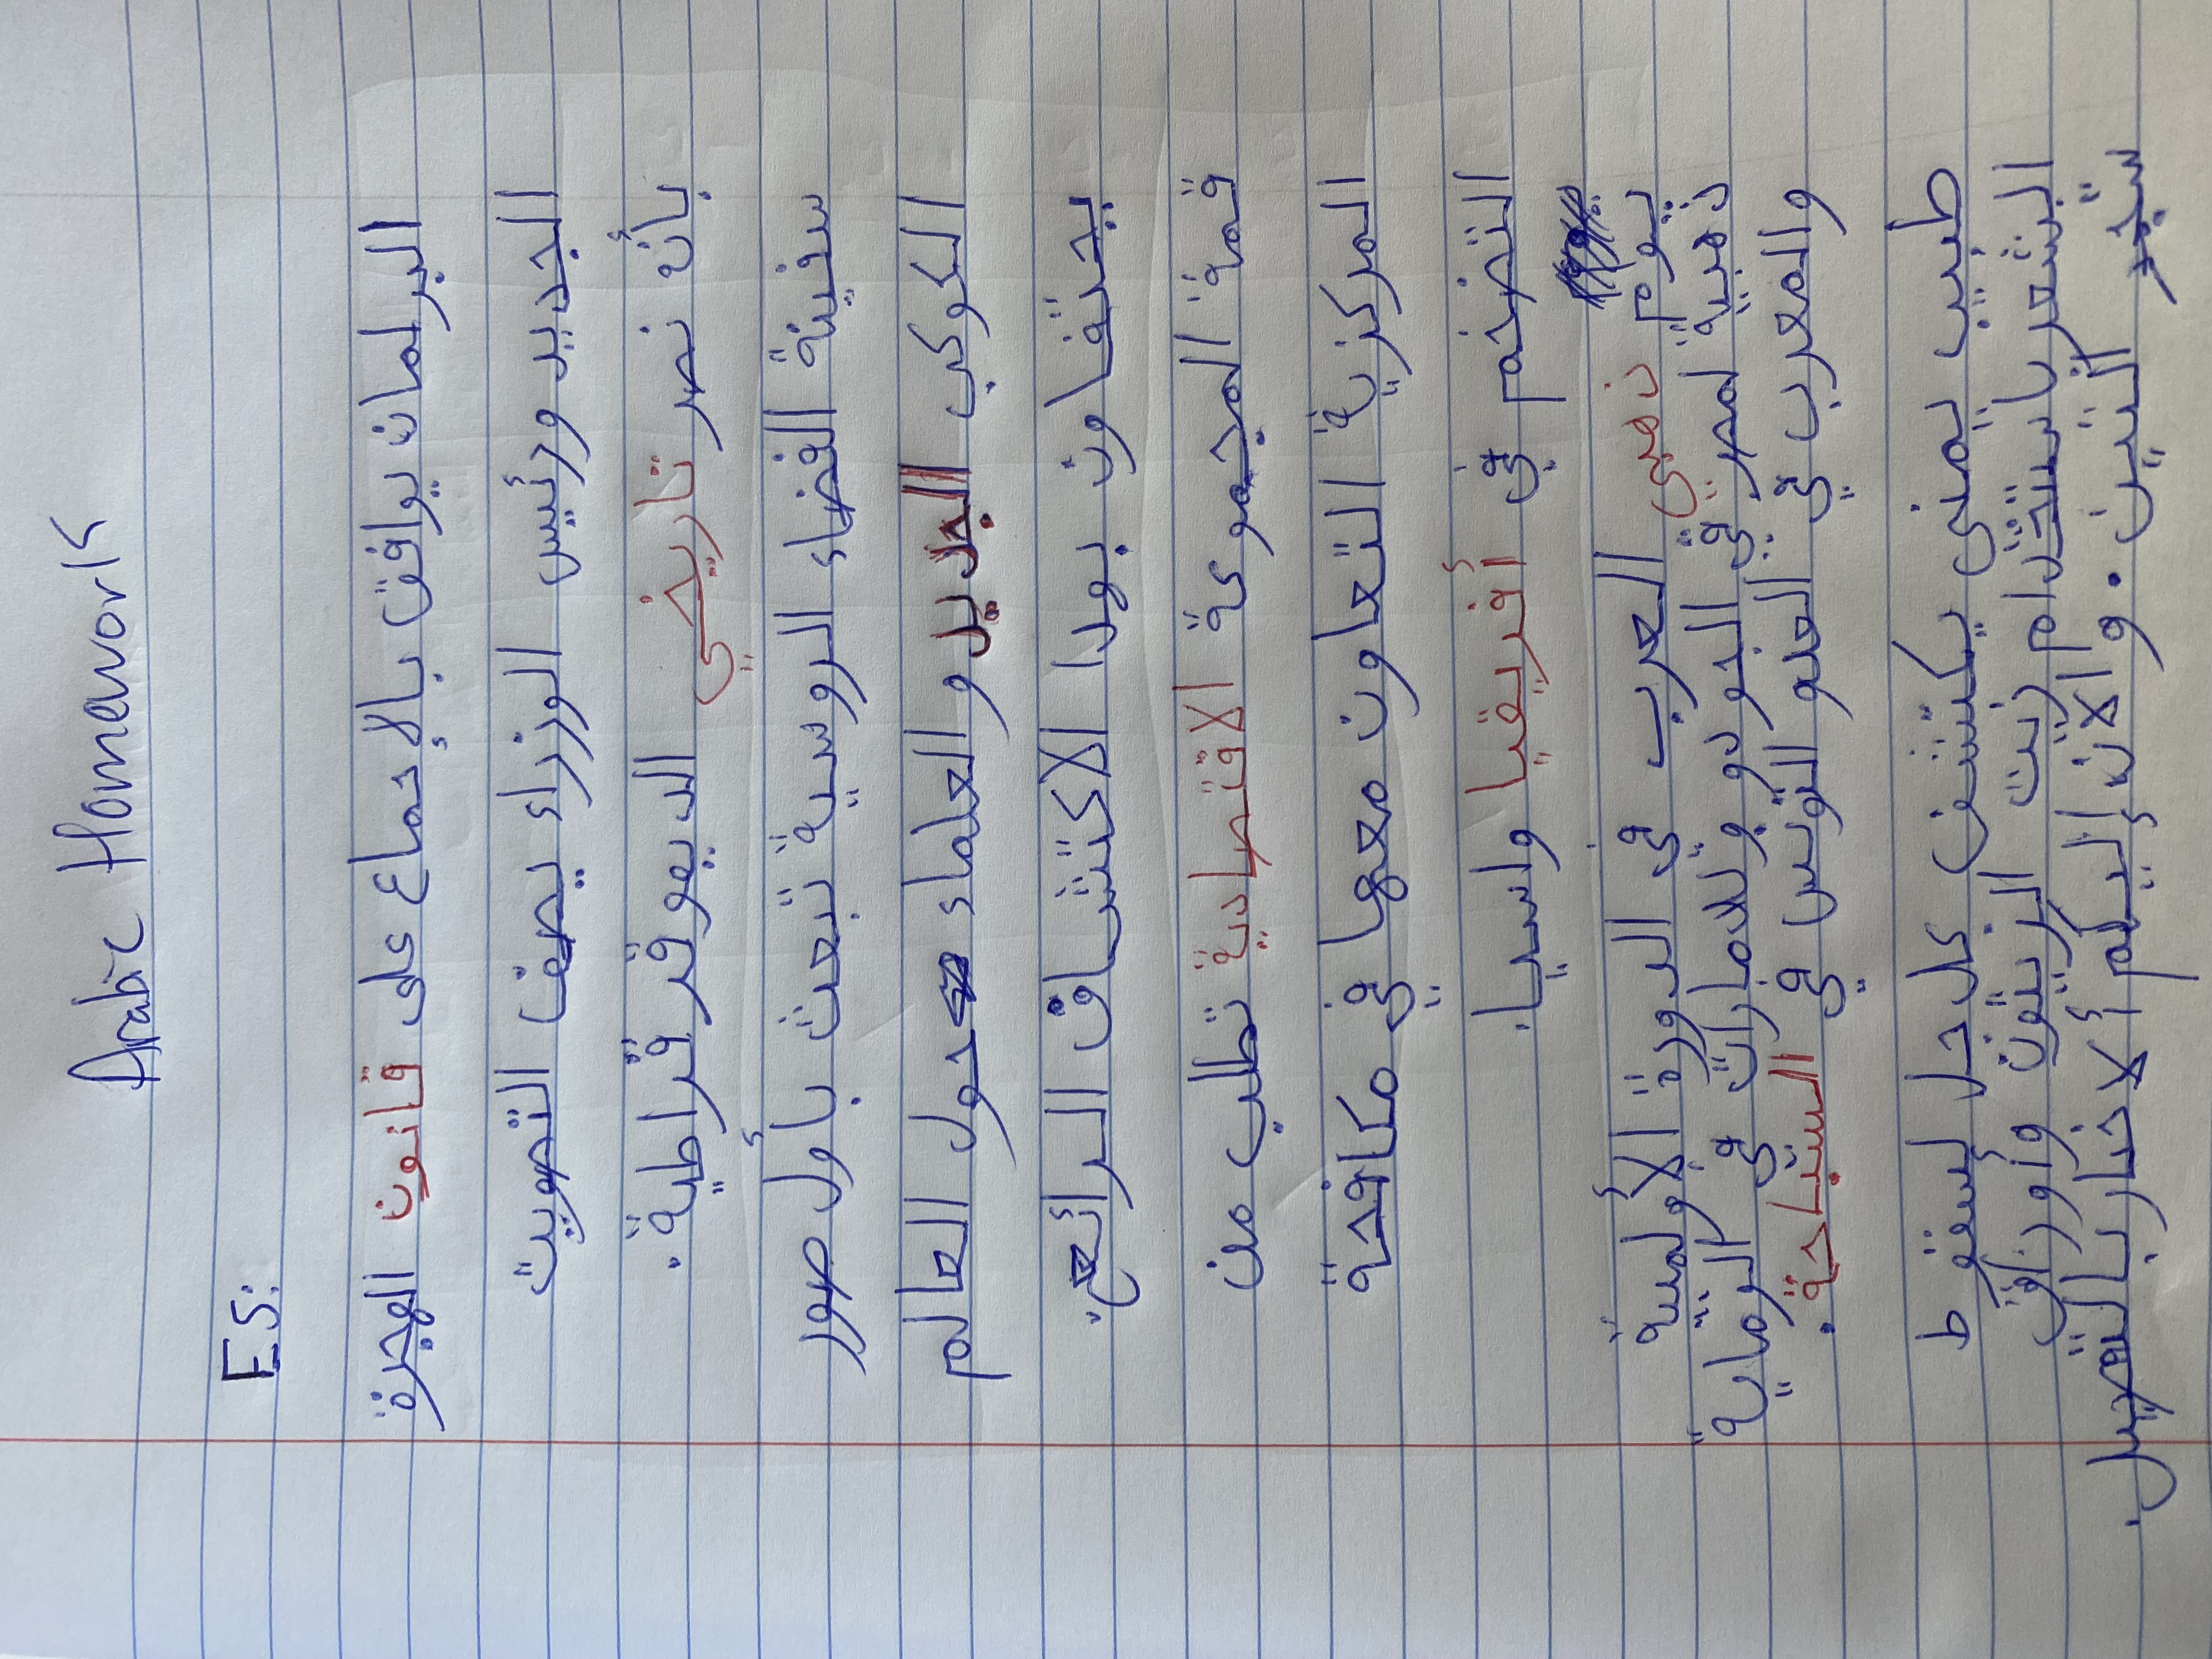 Arabic Homework
E5:
البرلمان يوافق بالإجماع على قانون الهجرة
الجديد ورئيس الوزراء يصف التصويت
بأنه نصر تاريخي الديموقر قراطية.
سفينة الفضاء الروسية تبعث بأول صور
الكوكب الجديد والعلماء حول العالم
يحتفاون بهدا الاكتشاف الرائع.
قمة المجموعة الاقتصادية تطلب من
المركزية التعاون معها في مكافحة
التضخم في أفريقيا واسيا.
يوم ذهبي العرب في الدورة الأولمبية
ذهبية لمصر في الجودو وللامارات في الرماية
والمغرب في العدو التونس في السباحة.
طبيب يمني يكتشف لسقوط
الشعر باستخدام زيت الزيتون وأوراق
شجر التين. والان إليكم ألاخبار بالتفصيل.